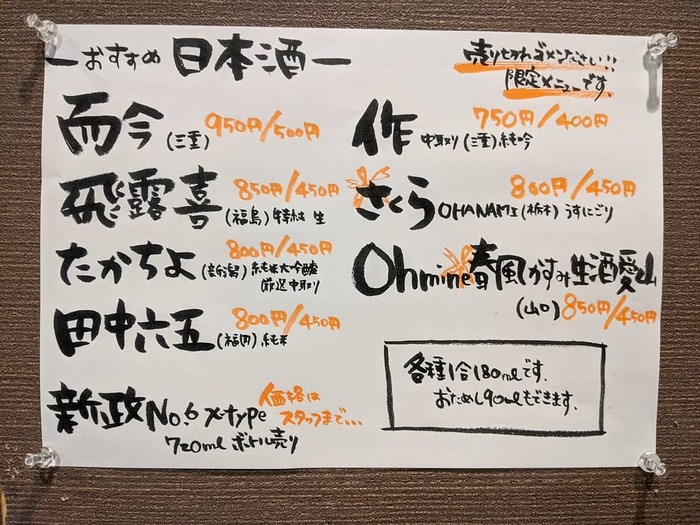 ーおすすめ 日本酒ー
売り切れゴメンなさい!!
限定メニューです。
而今 (三重) 950円/500円
飛露喜 850円/450円
(福島) 特純 生
たかちよ 800円/450円
(新潟) 純米大吟醸
厳選中取り
田中六五 800円/450円
(福岡) 純米
新政 No.6 X-type 価格は
スタッフまで…
720ml ボトル売り
作 750円/400円
中取り (三重) 純吟
さくら 800円/450円
OHANAMI (栃木) うすにごり
Ohmine 春風かすみ生酒愛山
(山口) 850円/450円
各種1合180mlです。
おためし90mlもできます。